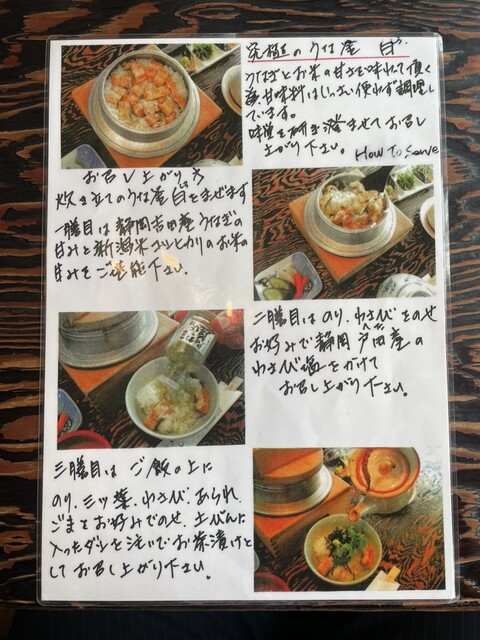 究極のうな釜めし
うなぎとお米の甘さを味わって頂く
為甘味料はいっさい使わず調理し
ています。
味覚を研ぎ澄ませてお召し
上がり下さい。 How To Serve
お召し上がり方
炊き立てのうな釜めしをまぜます
一膳目は静岡吉田産うなぎの
甘みと新潟米コシヒカリのお米の
甘みをご堪能下さい。
二膳目はのり、わさびをのせ
お好みで静岡戸田産の
へだ
わさび塩をかけて
お召し上がり下さい。
三膳目はご飯の上に
のり、三ッ葉、わさび、あられ、
ごまをお好みでのせ、土びんに
入ったダシを注いでお茶漬けと
してお召し上がり下さい。